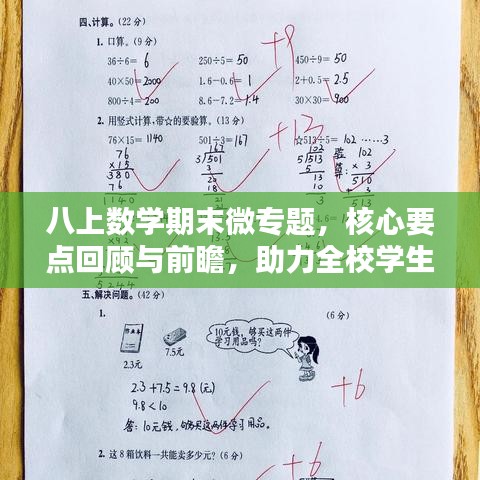 四、计算。(22分)
1. 口算。(9分) +9
36÷6= 6 250÷5= 50 450÷9= 50
40×50=2000 1.6-0.6= 1 2+0.5= 2.5
800÷4=200 8.6-7.2=1.4 30×30=900
2. 用竖式计算,带☆的要验算。(13分) +13
76×15= 1140 501÷3=167 ☆513÷5= 102……3
76 167 102 验 102
×15 3√501 5√513 算 × 5
380 3 5
76 20 13
18 10
21 3
21
八上数学期末微专题，核心要
点回顾与前瞻，助力全校学生
五、解决问题。(42分)
1. (6分)
10元钱，够买这两件
学习用品吗?
2.3元 7.5元
2.3+7.5=9.8(元) +6
9.8<10
答: 10元钱，够买这两件学习用品。
2. 这8箱饮料一共能卖多少元? (6分) +6